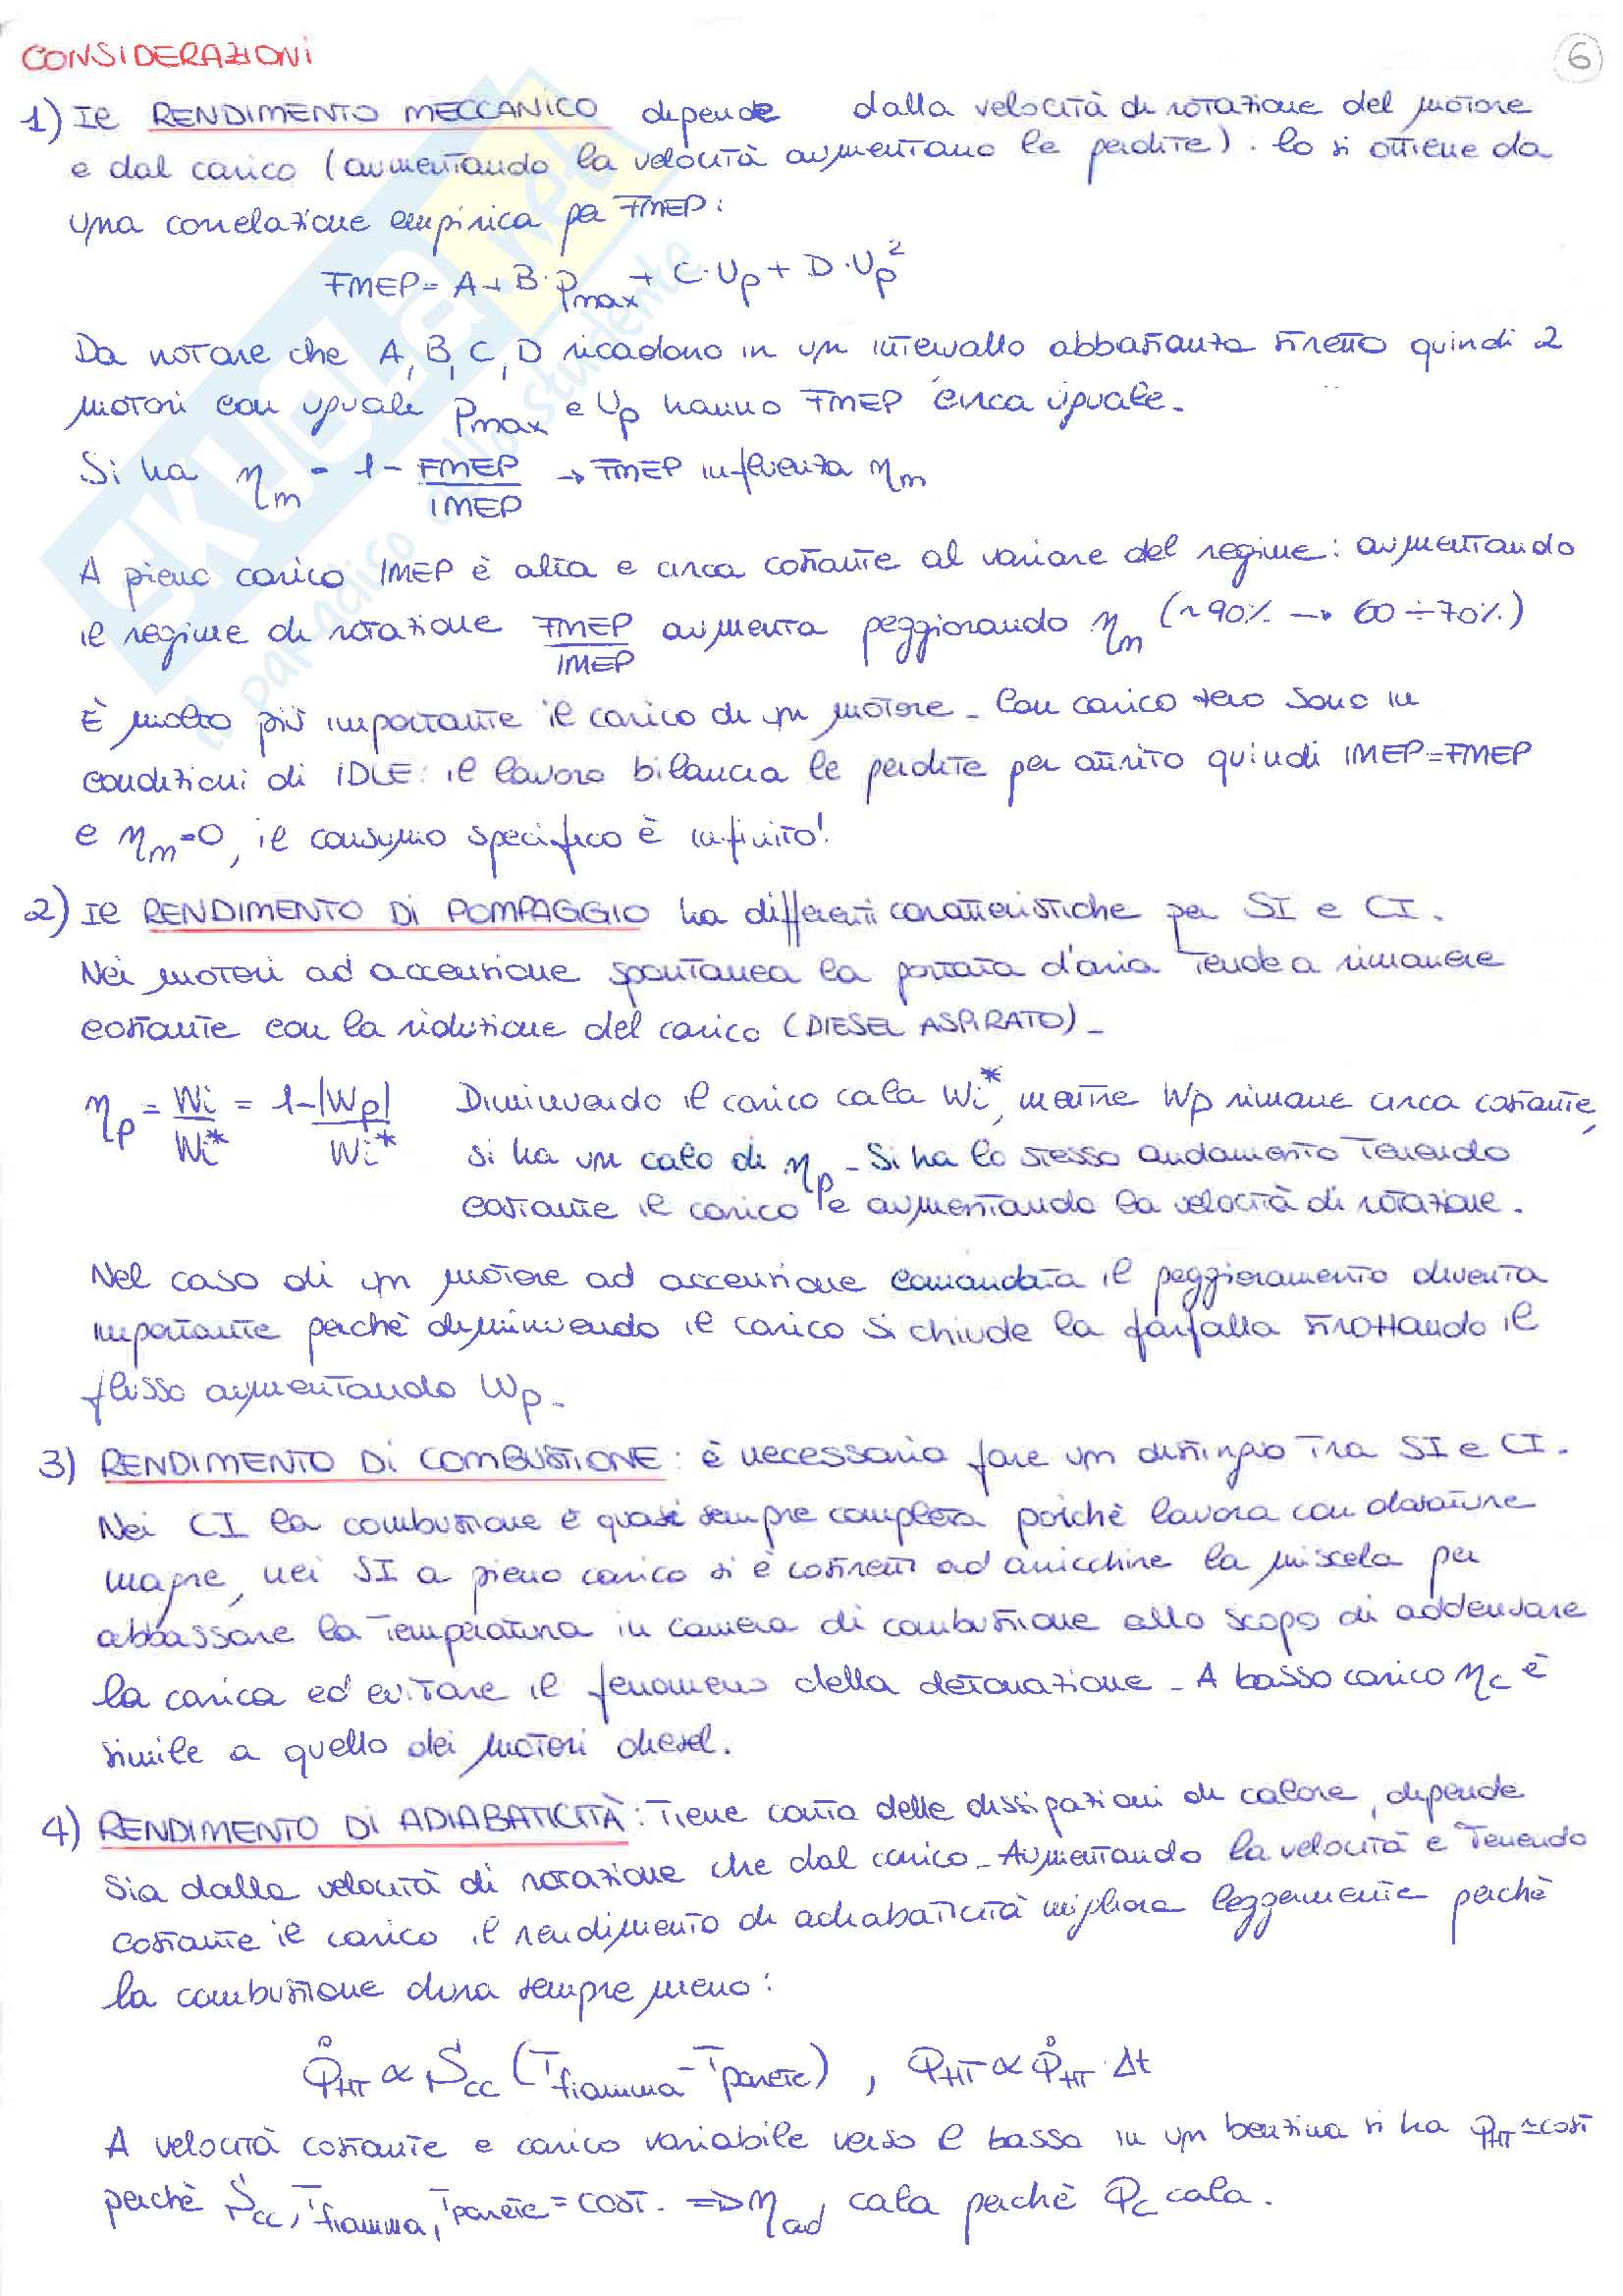 CONSIDERAZIONI
6
1) Il RENDIMENTO MECCANICO dipende dalla velocità di rotazione del motore
e dal carico (aumentando la velocità aumentano le perdite). Lo si ottiene da
una correlazione empirica per FMEP:
FMEP = A + B·Pmax + C·Up + D·Up²
Da notare che A, B, C, D ricadono in un intervallo abbastanza stretto quindi 2
motori con uguale Pmax e Up hanno FMEP circa uguale.
Si ha ηm = 1 - FMEP/IMEP → FMEP influenza ηm
A pieno carico IMEP è alta e circa costante al variare del regime: aumentando
il regime di rotazione FMEP/IMEP aumenta peggiorando ηm (~90% → 60÷70%)
È molto più importante il carico di un motore. Con carico zero sono in
condizioni di IDLE: il lavoro bilancia le perdite per attrito quindi IMEP=FMEP
e ηm=0, il consumo specifico è infinito!
2) Il RENDIMENTO DI POMPAGGIO ha differenti caratteristiche per SI e CI.
Nei motori ad accensione spontanea la portata d'aria tende a rimanere
costante con la riduzione del carico (DIESEL ASPIRATO).
ηp = Wi/Wi* = 1-|Wp|/Wi* Diminuendo il carico cala Wi*, mentre Wp rimane circa costante,
si ha un calo di ηp. Si ha lo stesso andamento tenendo
costante il carico e aumentando la velocità di rotazione.
Nel caso di un motore ad accensione comandata il peggioramento diventa
importante perchè diminuendo il carico si chiude la farfalla strozzando il
flusso aumentando Wp.
3) RENDIMENTO DI COMBUSTIONE: è necessario fare un distinguo tra SI e CI.
Nei CI la combustione è quasi sempre completa poichè lavora con dosature
magre, nei SI a pieno carico si è costretti ad arricchire la miscela per
abbassare la temperatura in camera di combustione allo scopo di addensare
la carica ed evitare il fenomeno della detonazione. A basso carico ηc è
simile a quello dei motori diesel.
4) RENDIMENTO DI ADIABATICITÀ: Tiene conto delle dissipazioni di calore, dipende
sia dalla velocità di rotazione che dal carico. Aumentando la velocità e tenendo
costante il carico il rendimento di adiabaticità migliora leggermente perchè
la combustione dura sempre meno:
Q̇HT ∝ Scc (Tfiamma - Tparete), QHT ∝ Q̇HT·Δt
A velocità costante e carico variabile verso il basso in un benzina si ha QHT≃cost
perchè Scc, Tfiamma, Tparete = cost. ⇒ ηad cala perchè Qc cala.
SKUOLA.net
il paradiso dello studente